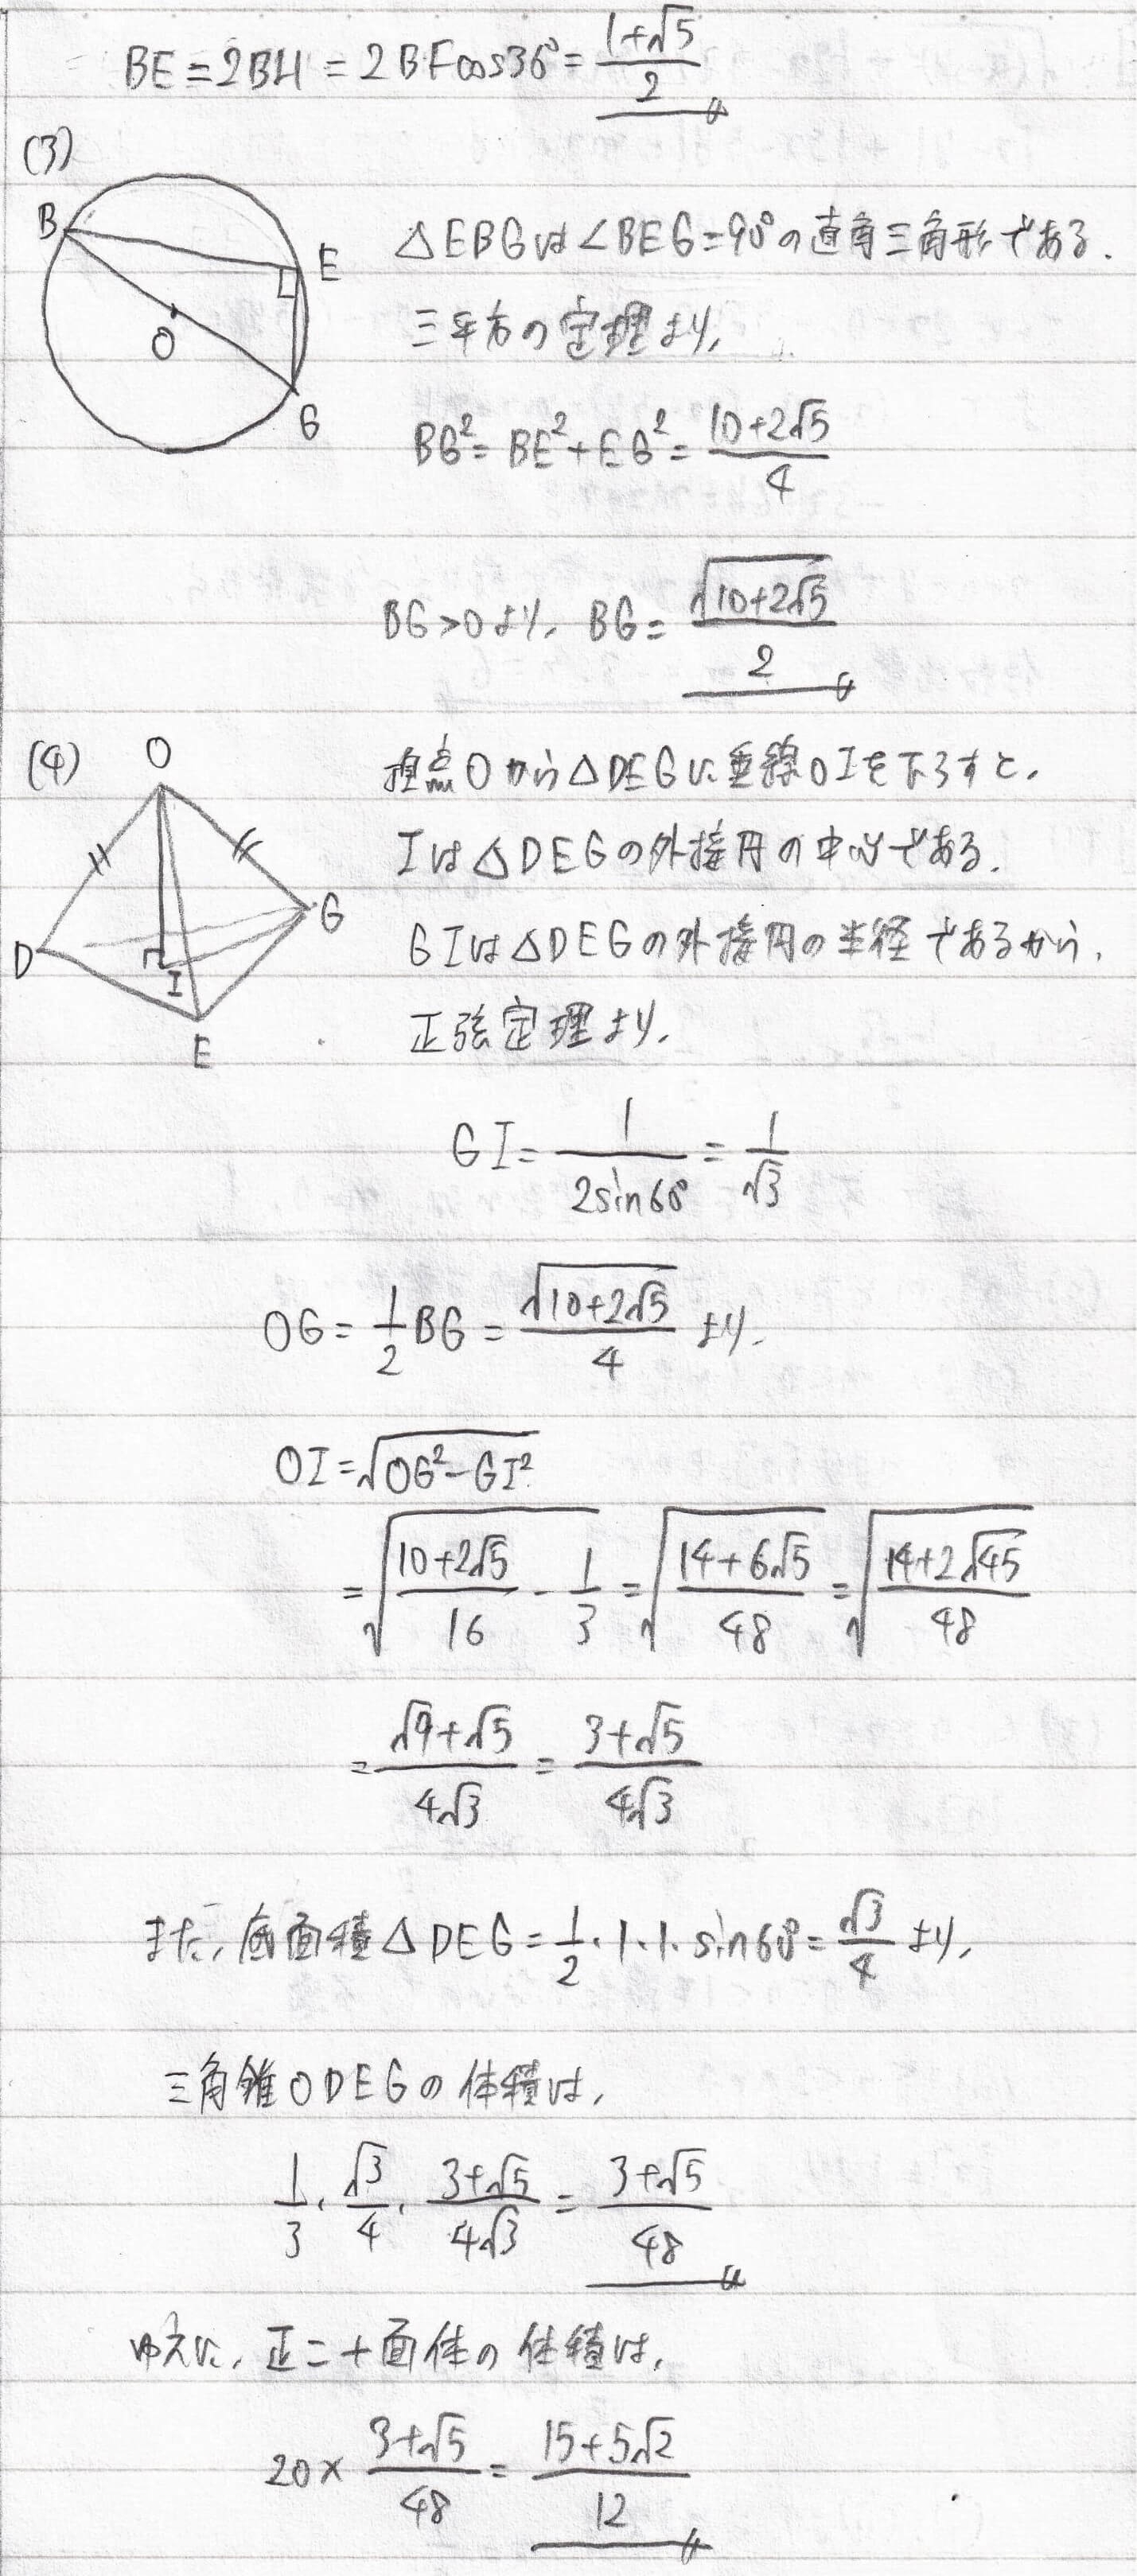 BE = 2BH = 2BFcos36° = (1+√5)/2
(3)
B
E
O
G
△EBGは∠BEG=90°の直角三角形である.
三平方の定理より,
BG² = BE² + EG² = (10+2√5)/4
BG>0より, BG = √(10+2√5)/2
(4)
O
D
G
I
E
頂点Oから△DEGに垂線OIを下ろすと,
Iは△DEGの外接円の中心である.
GIは△DEGの外接円の半径であるから,
正弦定理より,
GI = 1/(2sin60°) = 1/√3
OG = 1/2 BG = √(10+2√5)/4 より,
OI = √(OG²-GI²)
= √((10+2√5)/16 - 1/3) = √((14+6√5)/48) = √((14+2√45)/48)
= (√9+√5)/(4√3) = (3+√5)/(4√3)
また, 底面積△DEG = 1/2・1・1・sin60° = √3/4 より,
三角錐ODEGの体積は,
1/3・√3/4・(3+√5)/(4√3) = (3+√5)/48
ゆえに, 正二十面体の体積は,
20× (3+√5)/48 = (15+5√2)/12